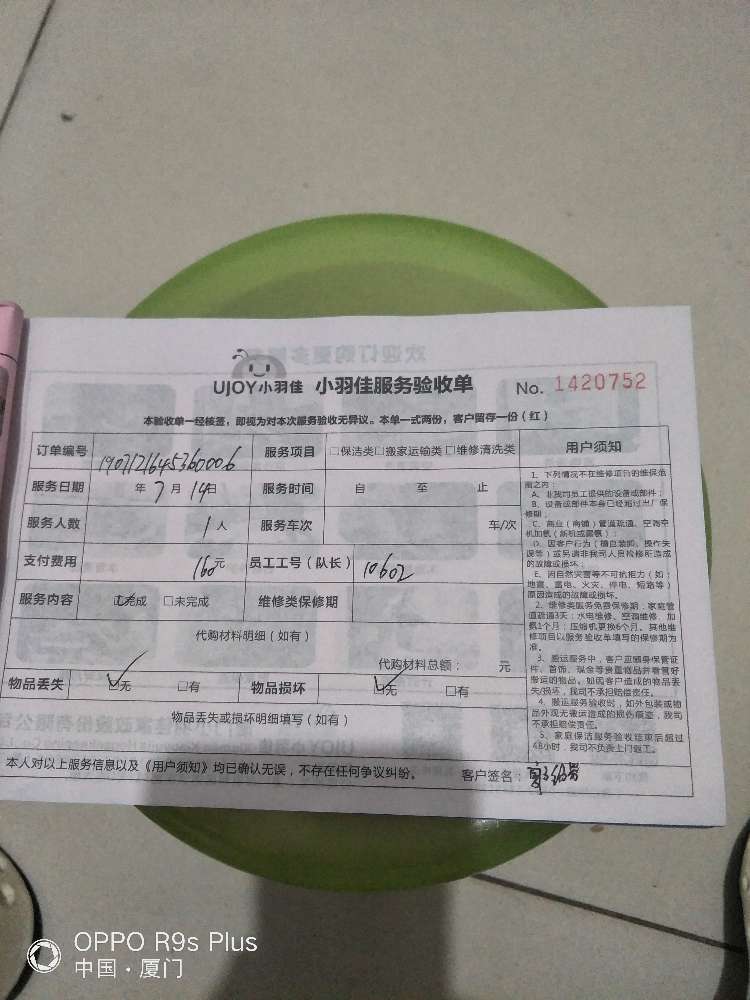 UJOY小羽佳 小羽佳服务验收单 No. 1420752
本验收单一经核签，即视为对本次服务验收无异议。本单一式两份，客户留存一份（红）
订单编号 服务项目 □保洁类□搬家运输类□维修清洗类 用户须知
服务日期 年7月14日 服务时间 自 至 止
服务人数 1人 服务车次 车/次
支付费用 160元 员工工号（队长） 10602
服务内容 □完成 □未完成 维修类保修期
代购材料明细（如有）
代购材料总额： 元
物品丢失 □无 □有 物品损坏 □无 □有
物品丢失或损坏明细填写（如有）
本人对以上服务信息以及《用户须知》均已确认无误，不存在任何争议纠纷。 客户签名：
1、下列情况不在维修项目的维保范
围之内：
A、非我司员工提供的设备或部件；
B、设备或部件本身已经超过出厂保
修期；
C、商业（商铺）管道疏通、空调空
机加氨（新机或漏氨）；
D、因客户行为（擅自装卸、操作失
误等）或另请非我司人员检修所造成
的故障或损坏；
E、因自然灾害等不可抗拒力（如：
地震、雷电、火灾、停电、短路等）
原因造成的故障或损坏。
2、维修类服务免费保修期：家庭管
道疏通3天；水电维修、空调维修、加
氨1个月；压缩机更换6个月。其他维
修项目以服务验收单填写的保修期为
准。
3、搬运服务中，客户应随身保管证
件、首饰、现金等贵重物品并看管好
搬运的物品。如因客户造成的物品丢
失/损坏，我司不承担赔偿责任。
4、搬运服务验收时，如外包装或物
品外观无搬运造成的损伤痕迹，我司
不承担赔偿责任。
5、家庭保洁服务验收结束后超过
48小时，我司不负责上门返工。
OPPO R9s Plus
中国·厦门